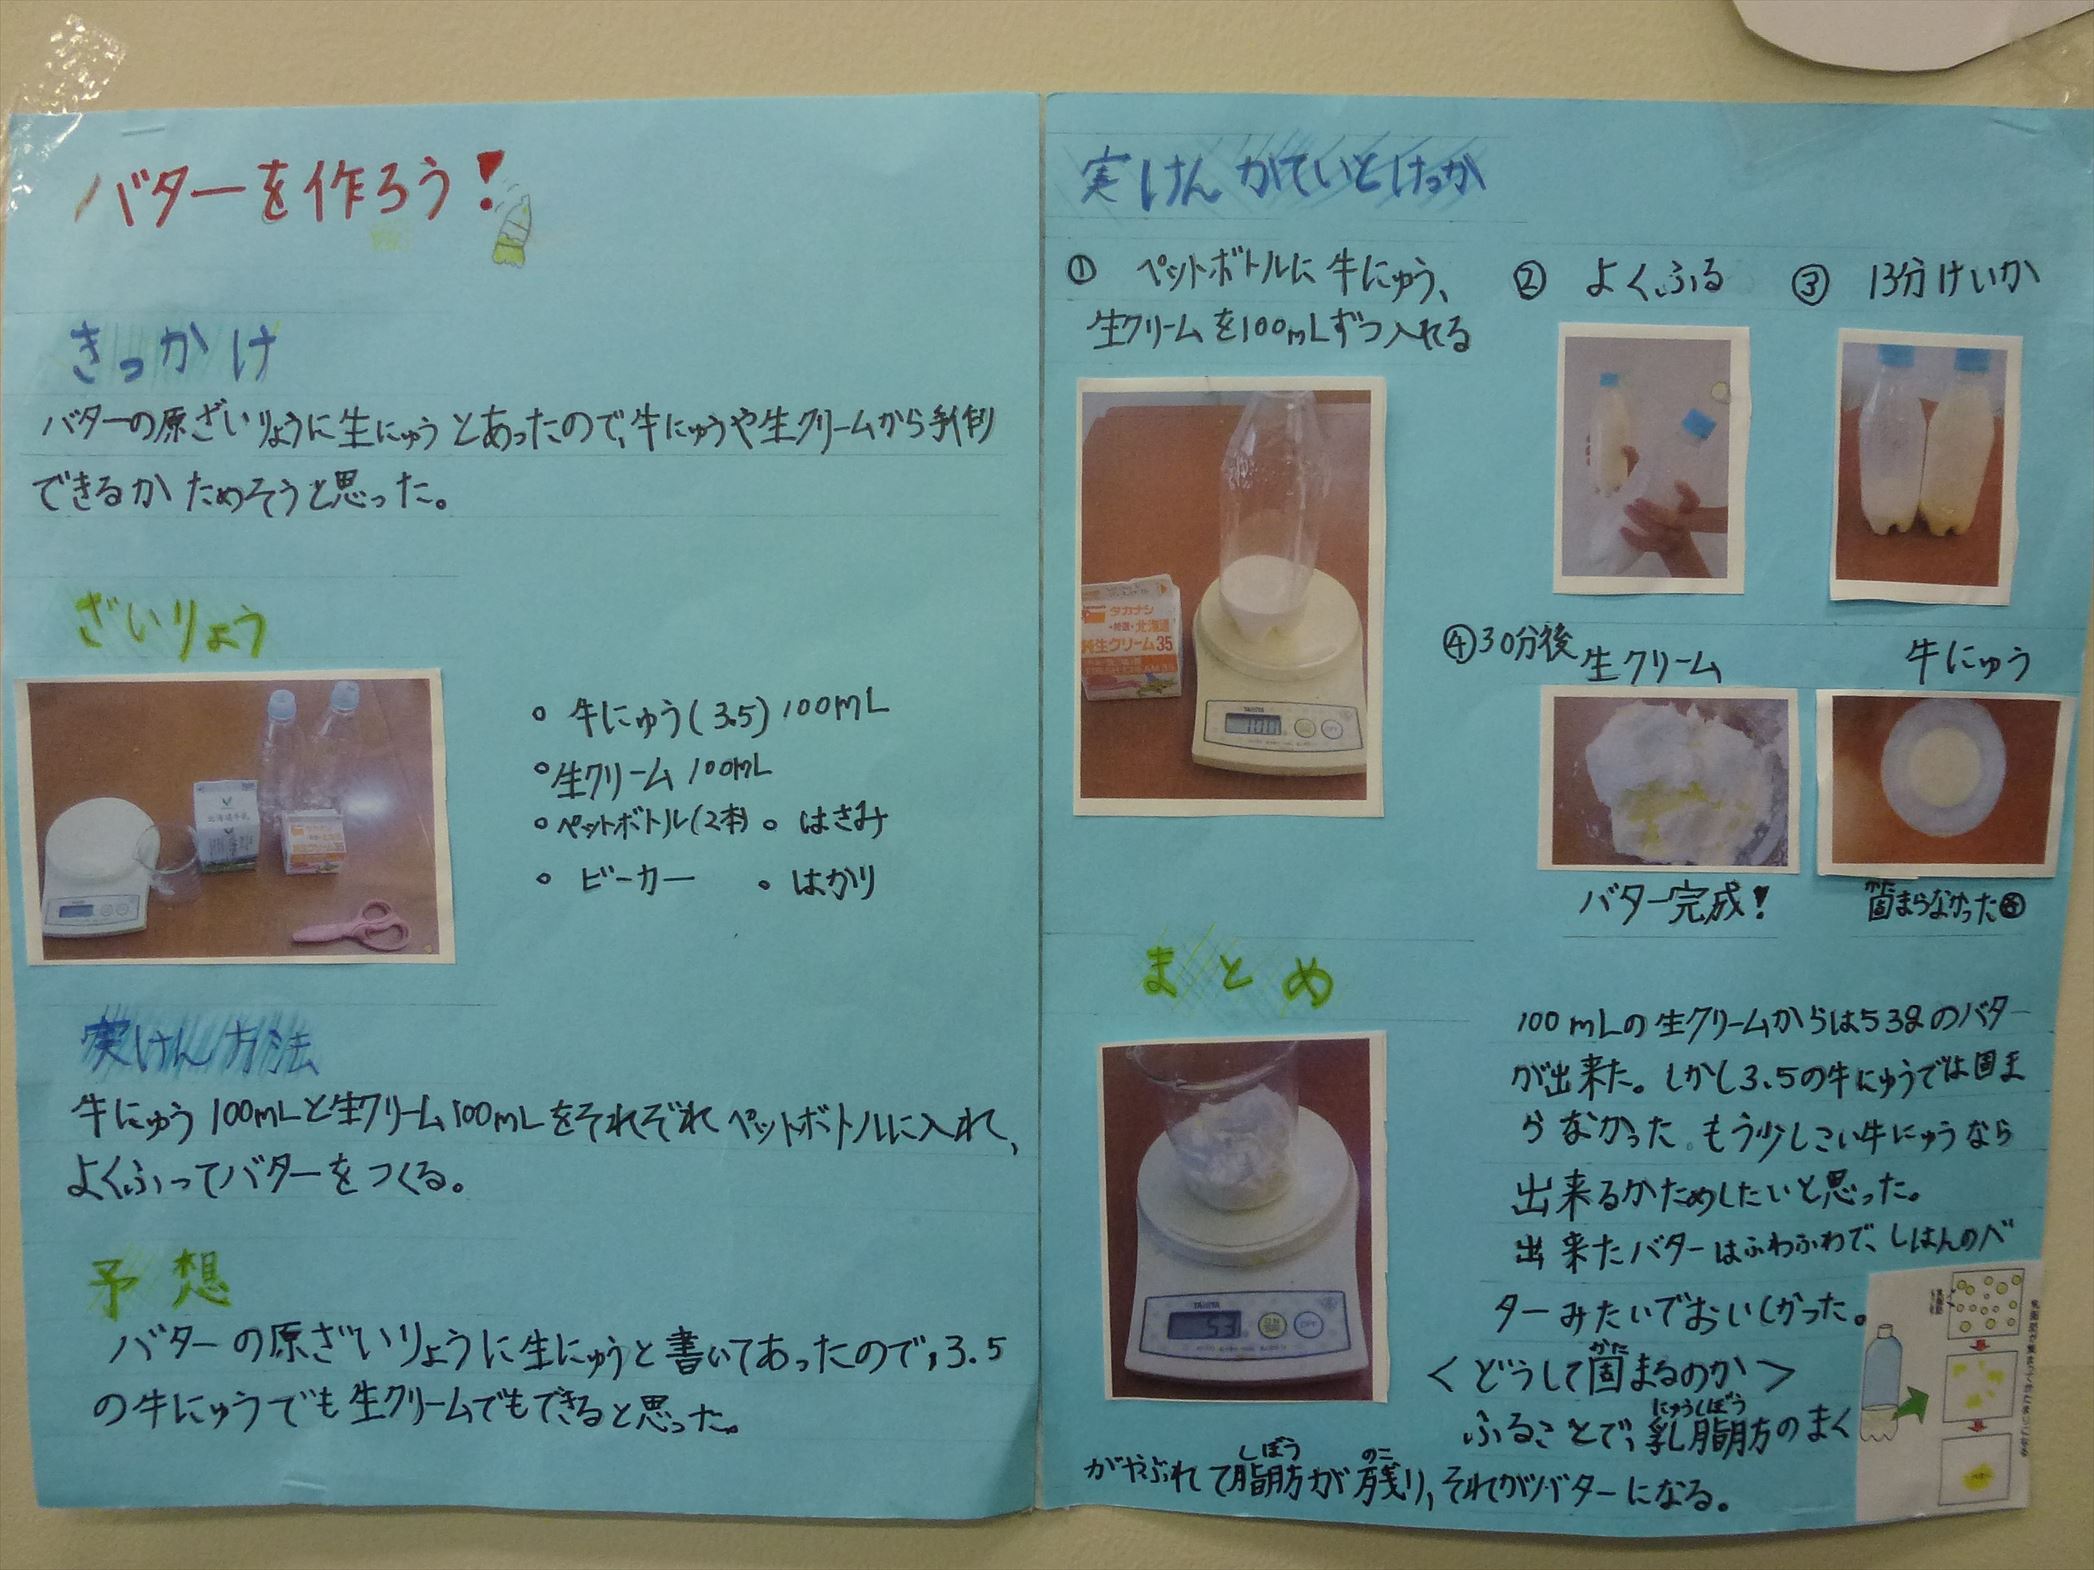 バターを作ろう!
きっかけ
バターの原ざいりょうに生にゅうとあったので、牛にゅうや生クリームから手作り
できるかためそうと思った。
ざいりょう
北海道牛乳
タカナシ
。牛にゅう(3.5)100mL
。生クリーム 100mL
。ペットボトル(2本)。はさみ
。ビーカー 。はかり
実けん方法
牛にゅう100mLと生クリーム100mLをそれぞれペットボトルに入れ、
よくふってバターをつくる。
予想
バターの原ざいりょうに生にゅうと書いてあったので、3.5
の牛にゅうでも生クリームでもできると思った。
実けんかていとけっか
① ペットボトルに牛にゅう、
生クリームを100mLずつ入れる
タカナシ
特選・北海道
純生クリーム35
TANITA
100
② よくふる
③ 13分けいか
④30分後
生クリーム
牛にゅう
バター完成!
かた
固まらなかった
まとめ
TANITA
53
ON
OFF
100mLの生クリームからは53gのバター
が出来た。しかし3.5の牛にゅうでは固ま
らなかった。もう少しこい牛にゅうなら
出来るかためしたいと思った。
出来たバターはふわふわで、しはんのバ
ターみたいでおいしかった。
<どうして固まるのか>
がた
ふることで、乳脂肪のまく
にゅうしぼう
がやぶれて脂肪が残り、それがバターになる。
しぼう のこ